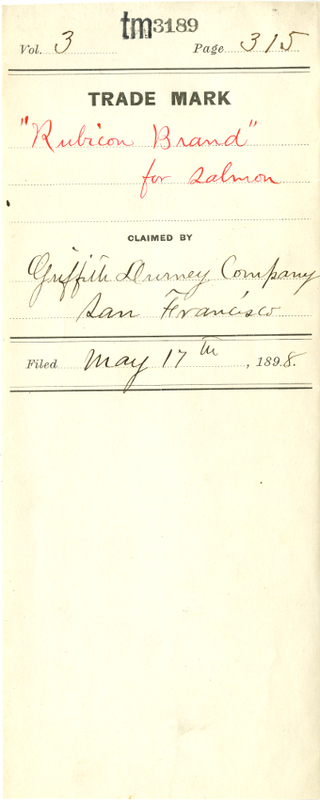 tm3189
Vol. 3 Page 315
TRADE MARK
"Rubicon Brand"
for salmon
CLAIMED BY
Griffith Durney Company
San Francisco
Filed May 17th, 1898.